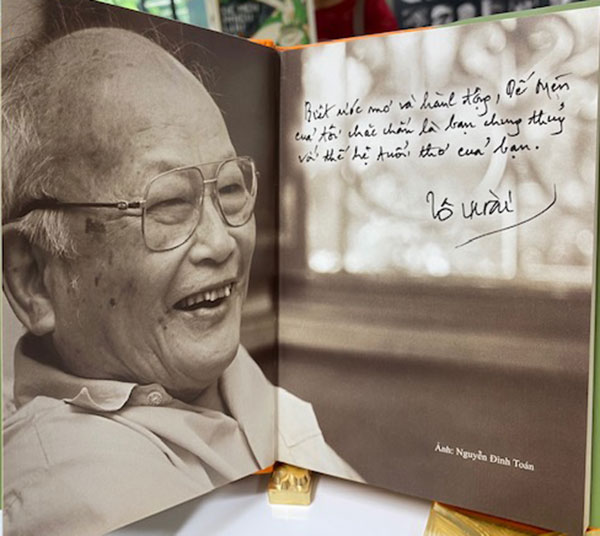 DẾ MÈN
Biết ước mơ và hành động, Dế Mèn
của tôi chắc chắn là bạn chung thuỷ
với thế hệ tuổi thơ của bạn.
Tô Hoài
Ảnh: Nguyễn Đình Toán